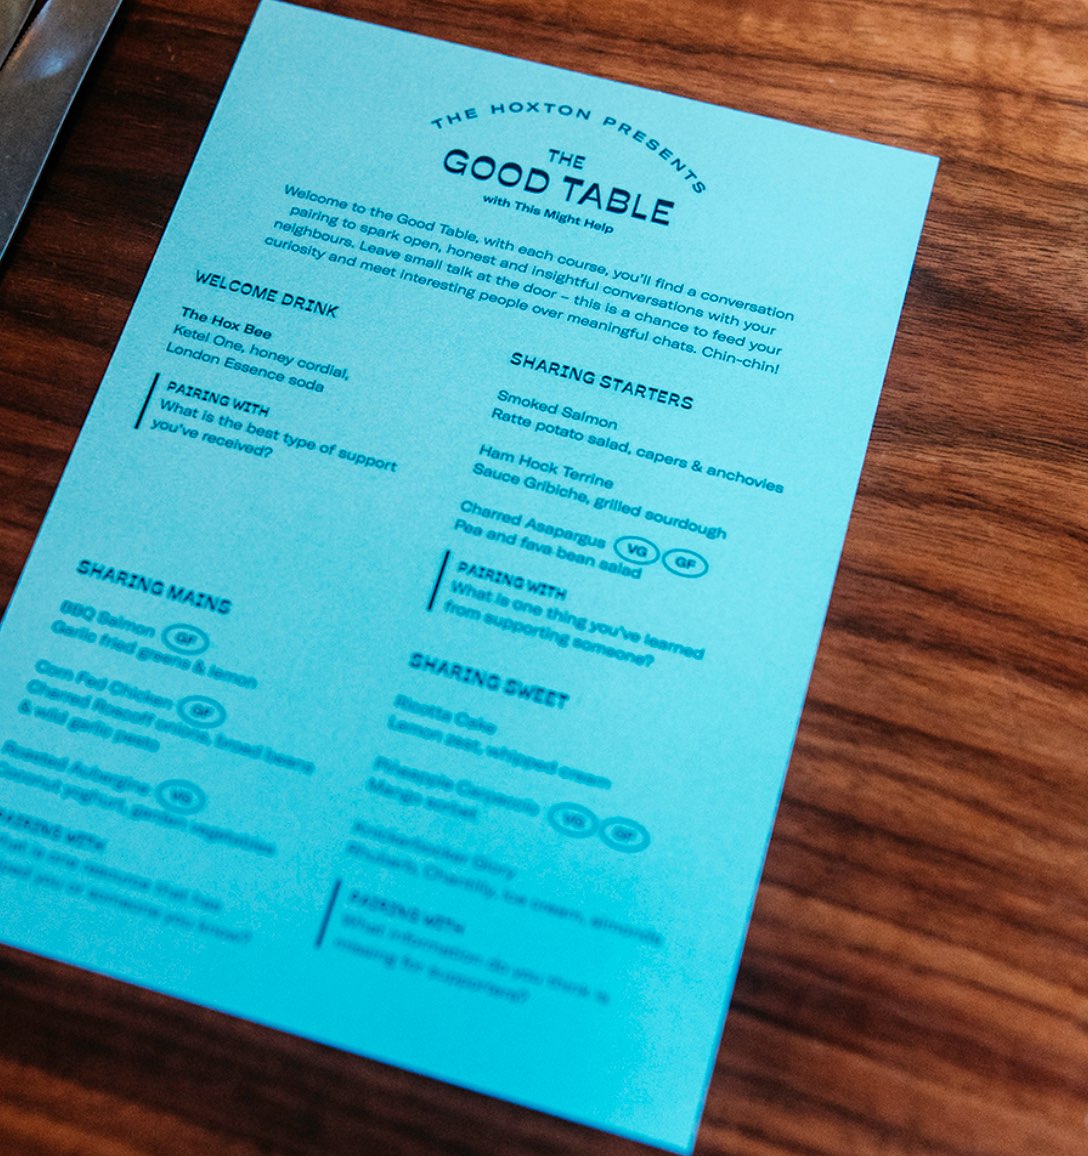 THE HOXTON PRESENTS
THE
GOOD TABLE
with This Might Help
Welcome to the Good Table, with each course, you'll find a conversation
pairing to spark open, honest and insightful conversations with your
neighbours. Leave small talk at the door – this is a chance to feed your
curiosity and meet interesting people over meaningful chats. Chin-chin!
WELCOME DRINK
The Hox Bee
Ketel One, honey cordial,
London Essence soda
PAIRING WITH
What is the best type of support
you've received?
SHARING STARTERS
Smoked Salmon
Ratte potato salad, capers & anchovies
Ham Hock Terrine
Sauce Gribiche, grilled sourdough
Charred Asapargus VG GF
Pea and fava bean salad
PAIRING WITH
What is one thing you've learned
from supporting someone?
SHARING MAINS
BBQ Salmon GF
Garlic fried greens & lemon
Corn Fed Chicken GF
Charred Roscoff onion, broad beans
& wild garlic pesto
Roasted Aubergine VG
yoghurt, garden vegetables
PAIRING WITH
is one resource that has
you or someone you know?
SHARING SWEET
Ricotta Cake
Lemon zest, whipped cream
Pineapple Carpaccio VG GF
Mango sorbet
Knickerbocker Glory
Rhubarb, Chantilly, ice cream, almonds
PAIRING WITH
What information do you think is
missing for supporters?